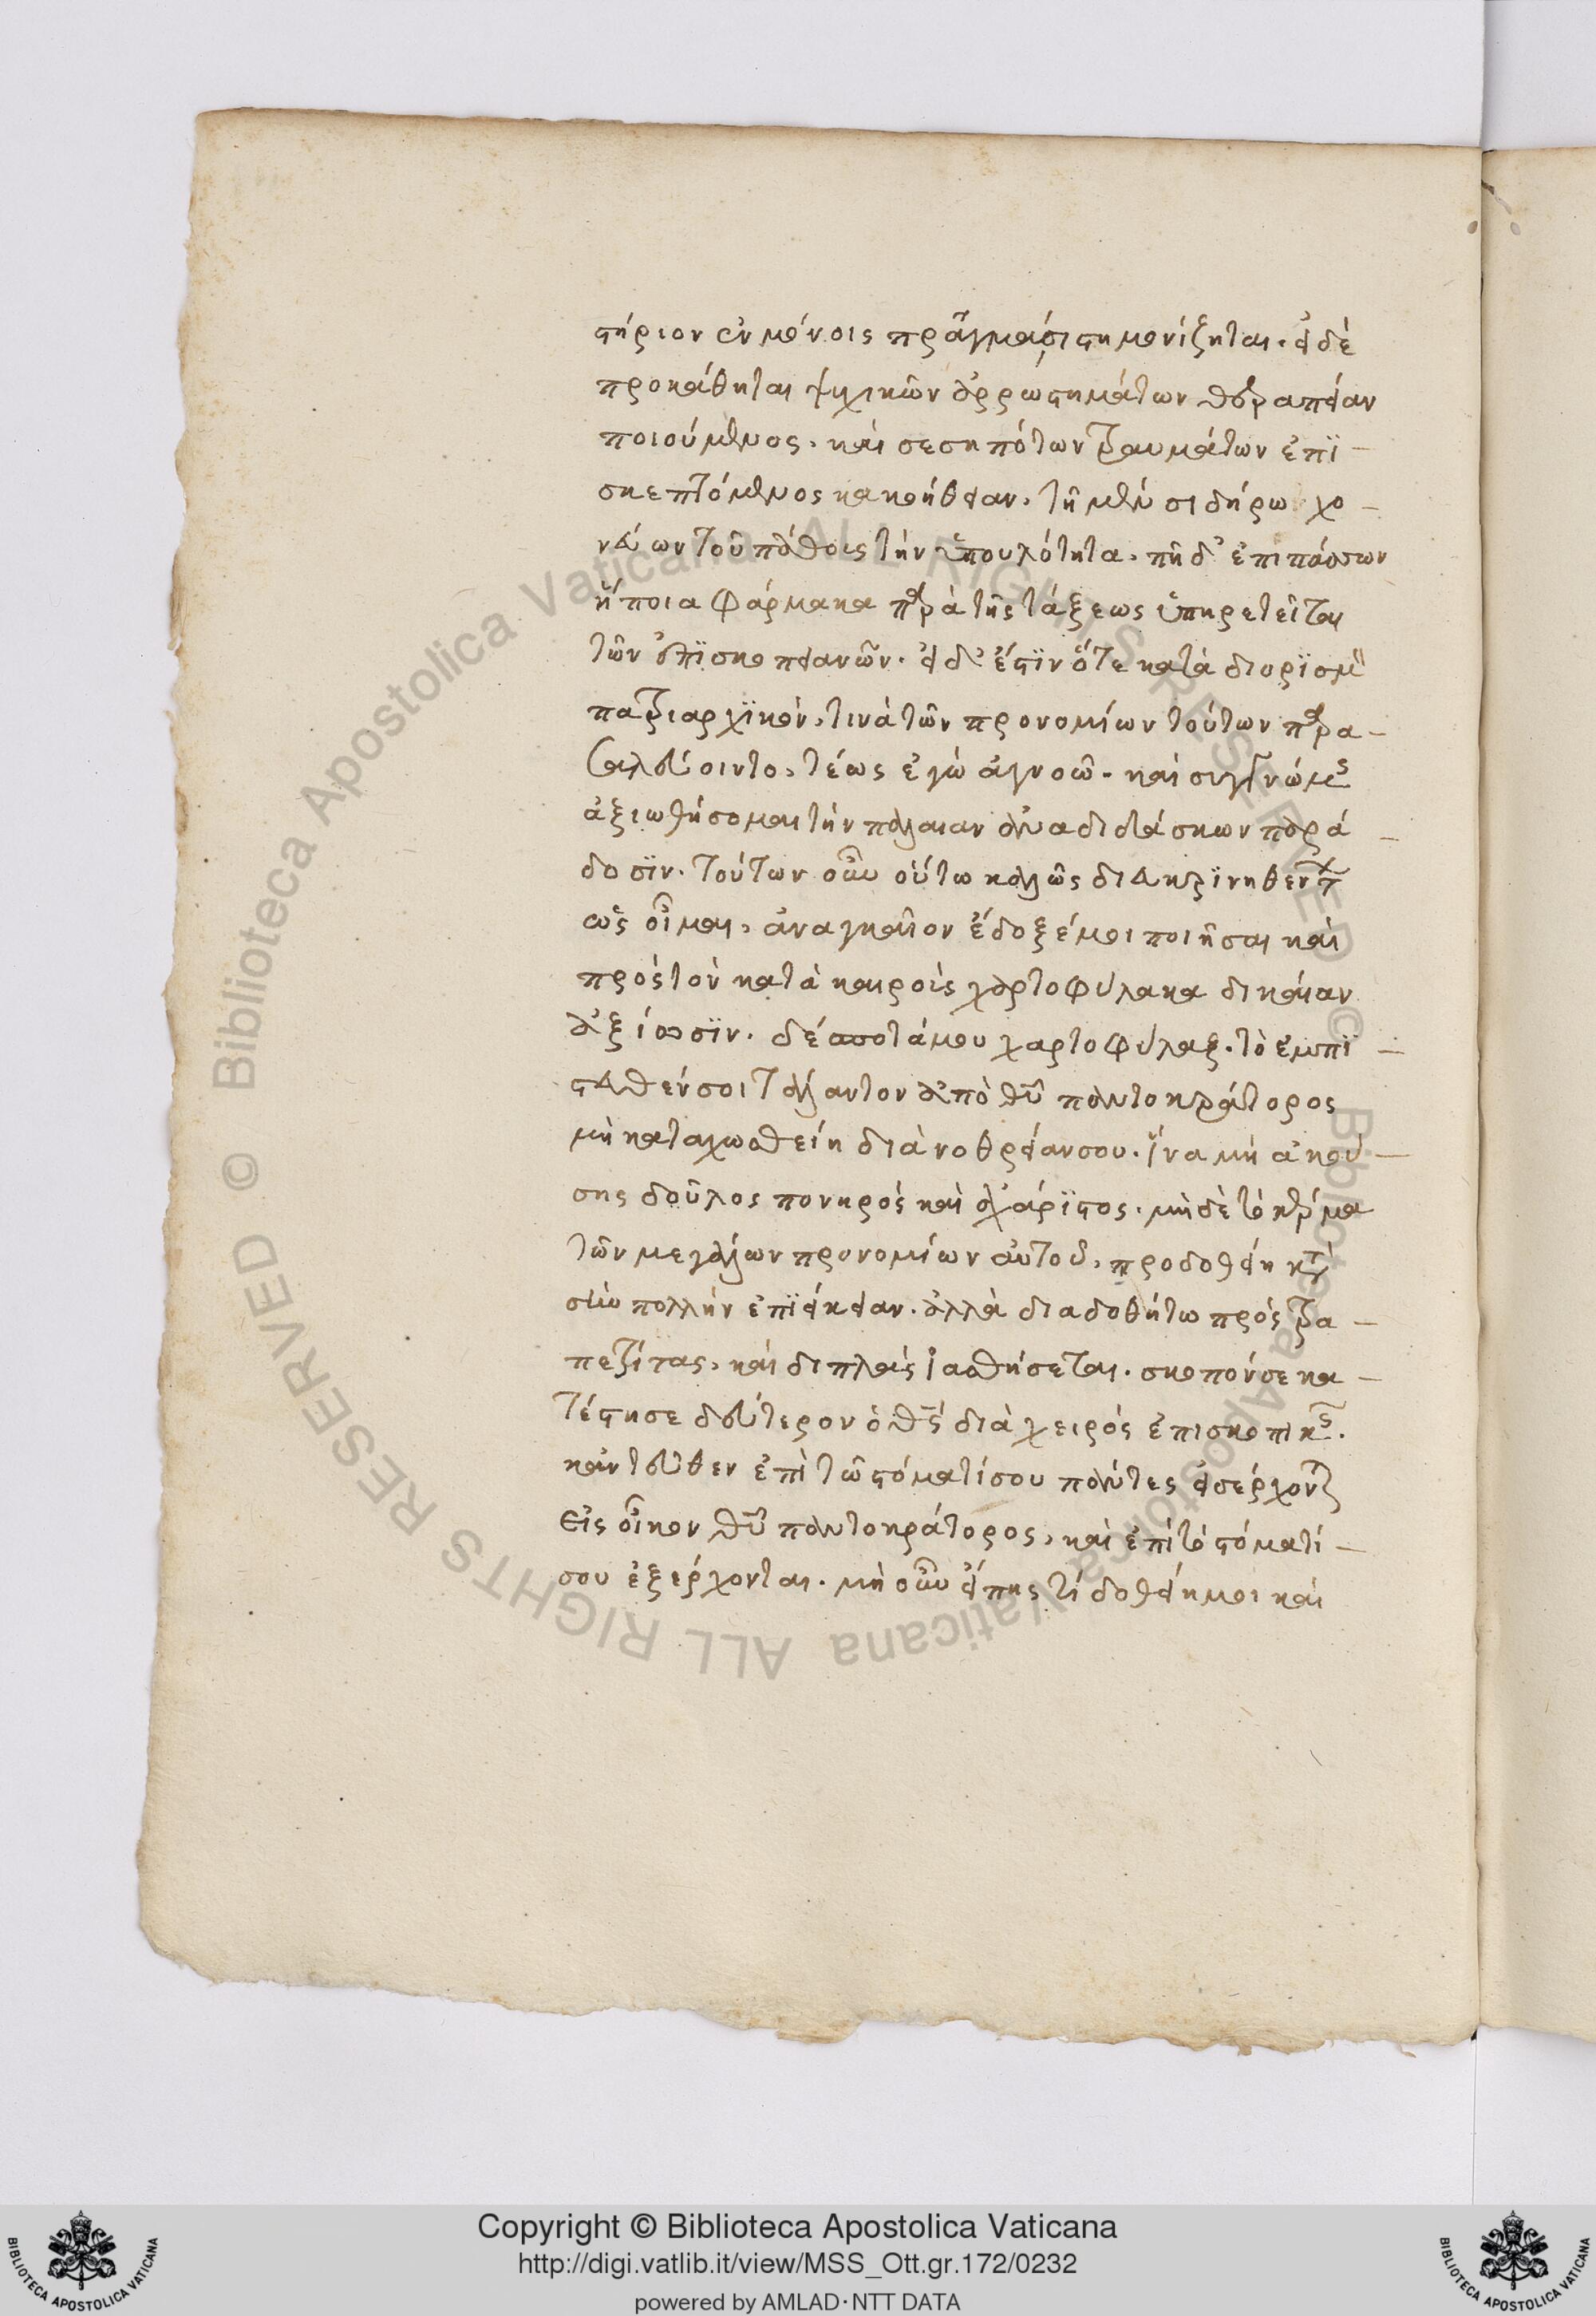 στήριον ἐν μόνοις πράγμασι στηματίζηται. εἰ δὲ
προκάθηται ψυχικῶν ἀρρωστημάτων θεραπείαν
ποιούμενος. καὶ σεσηπότων τραυμάτων ἐπϊ-
σκεπτόμενος κακοήθειαν. πῆ μὲν σιδήρω χο-
νεύων τοῦ πάθους τὴν ὑπουλότητα. πῆ δ' ἐπιπάσσων
ἤποια φάρμακα παρὰ τῆς τάξεως ὑπηρετεῖται
τῶν ἐπϊσκοπειανῶν. εἰ δ' ἔστϊν ὅτε κατὰ διορϊσμὸν
πατριαρχϊκόν, τινὰ τῶν προνομίων τούτων παρα-
σαλεύοιντο, τέως ἐγὼ ἀγνοῶ. καὶ συγγνώμης
ἀξιωθήσομαι τὴν παλαιὰν ἀναδιδάσκων παρά-
δοσϊν. τούτων οὖν οὕτω καλῶς διευκρϊνηθέντων
ὡς οἶμαι, ἀναγκαῖον ἔδοξέ μοι ποιῆσαι καὶ
πρὸς τὸν κατὰ καιροὺς χαρτοφύλακα δικαίαν
ἀξίωσϊν. δέσποτά μου χαρτοφύλαξ. τὸ ἐμπϊ-
στευθέν σοι τάλαντον ἀπὸ θυ παντοκράτορος
μὴ καταχωσθείη διὰ νοθρείαν σου. ἵνα μὴ ἀκού-
σης δοῦλος πονηρὸς καὶ ἀχάρϊστος. μὴ δὲ τὸ κέρμα
τῶν μεγάλων προνομίων αὐτοῦ, προδοθείη κατὰ
σὴν πολλὴν ἐπϊείκειαν. ἀλλὰ διαδοθήτω πρὸς τρα-
πεζίτας, καὶ διπλᾶς ἰαθήσεται. σκοπόν σε κα-
τέστησε δεύτερον ὁ θς διὰ χειρὸς ἐπισκοπικῆς.
κἀντεῦθεν ἐπὶ τῶ στόματί σου πάντες εἰσέρχονται
εἰς οἶκον θυ παντοκράτορος, καὶ ἐπὶ τῶ στόματί
σου ἐξέρχονται. μὴ οὖν εἴπης τί δοθείη μοι καὶ
Copyright © Biblioteca Apostolica Vaticana
http://digi.vatlib.it/view/MSS_Ott.gr.172/0232
powered by AMLAD·NTT DATA